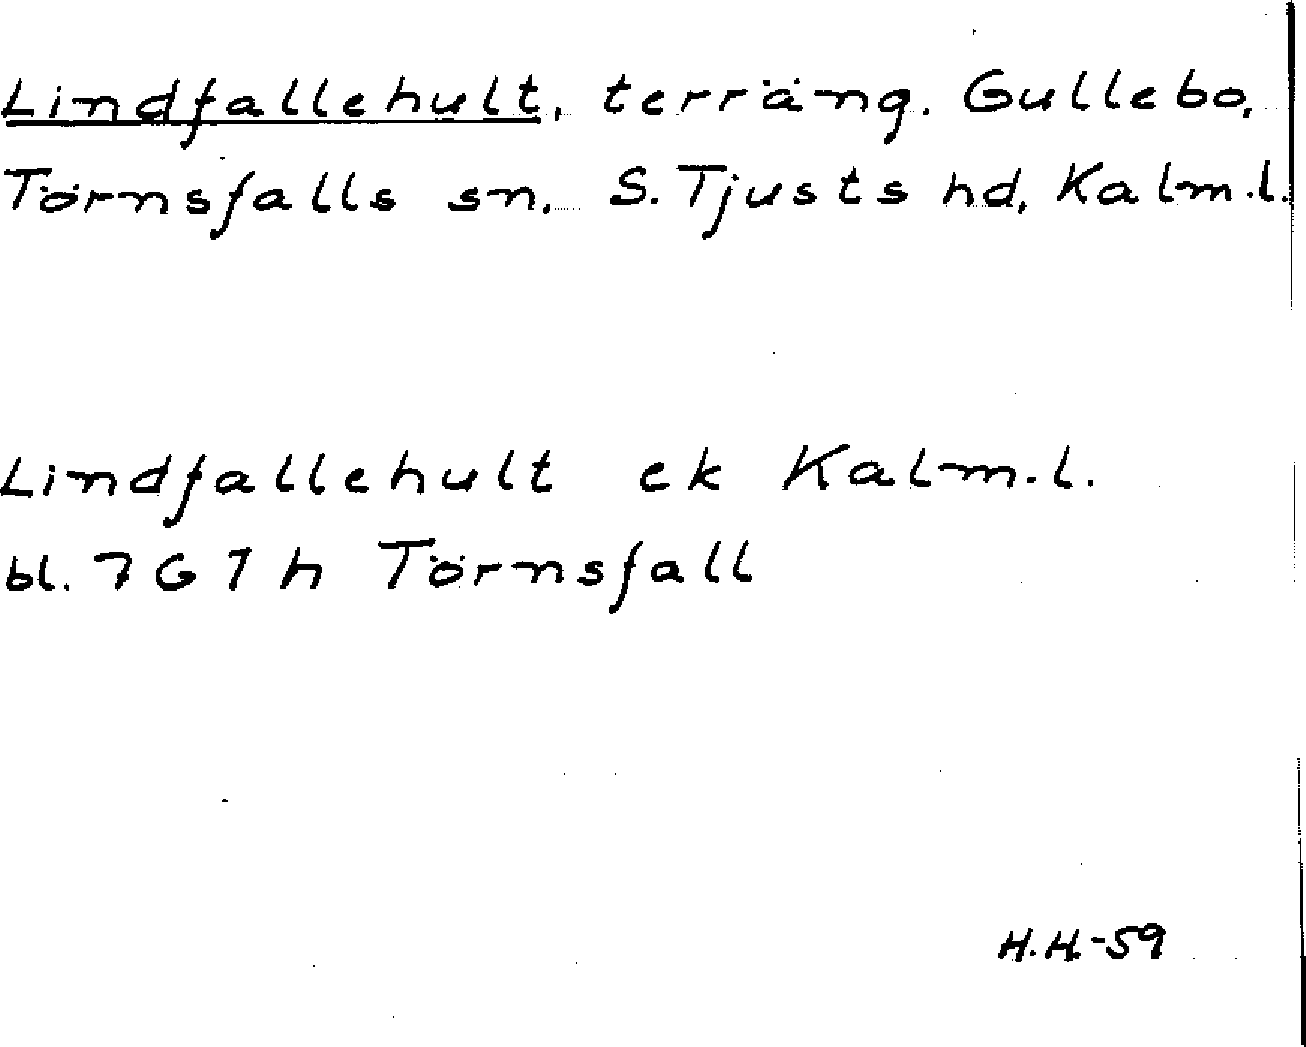 Lindfallehult, terräng. Gullebo,
Törnsfalls sn. S. Tjusts hd, Kalm.l.
Lindfallehult ek Kalm.l.
bl. 7G7h Törnsfall
H.H.-59